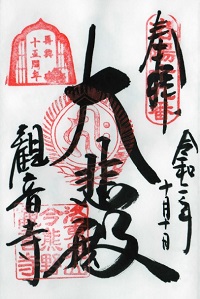 奉拝
令和二年
十月十日
大悲殿
観音寺
再興
十五周年
今熊野